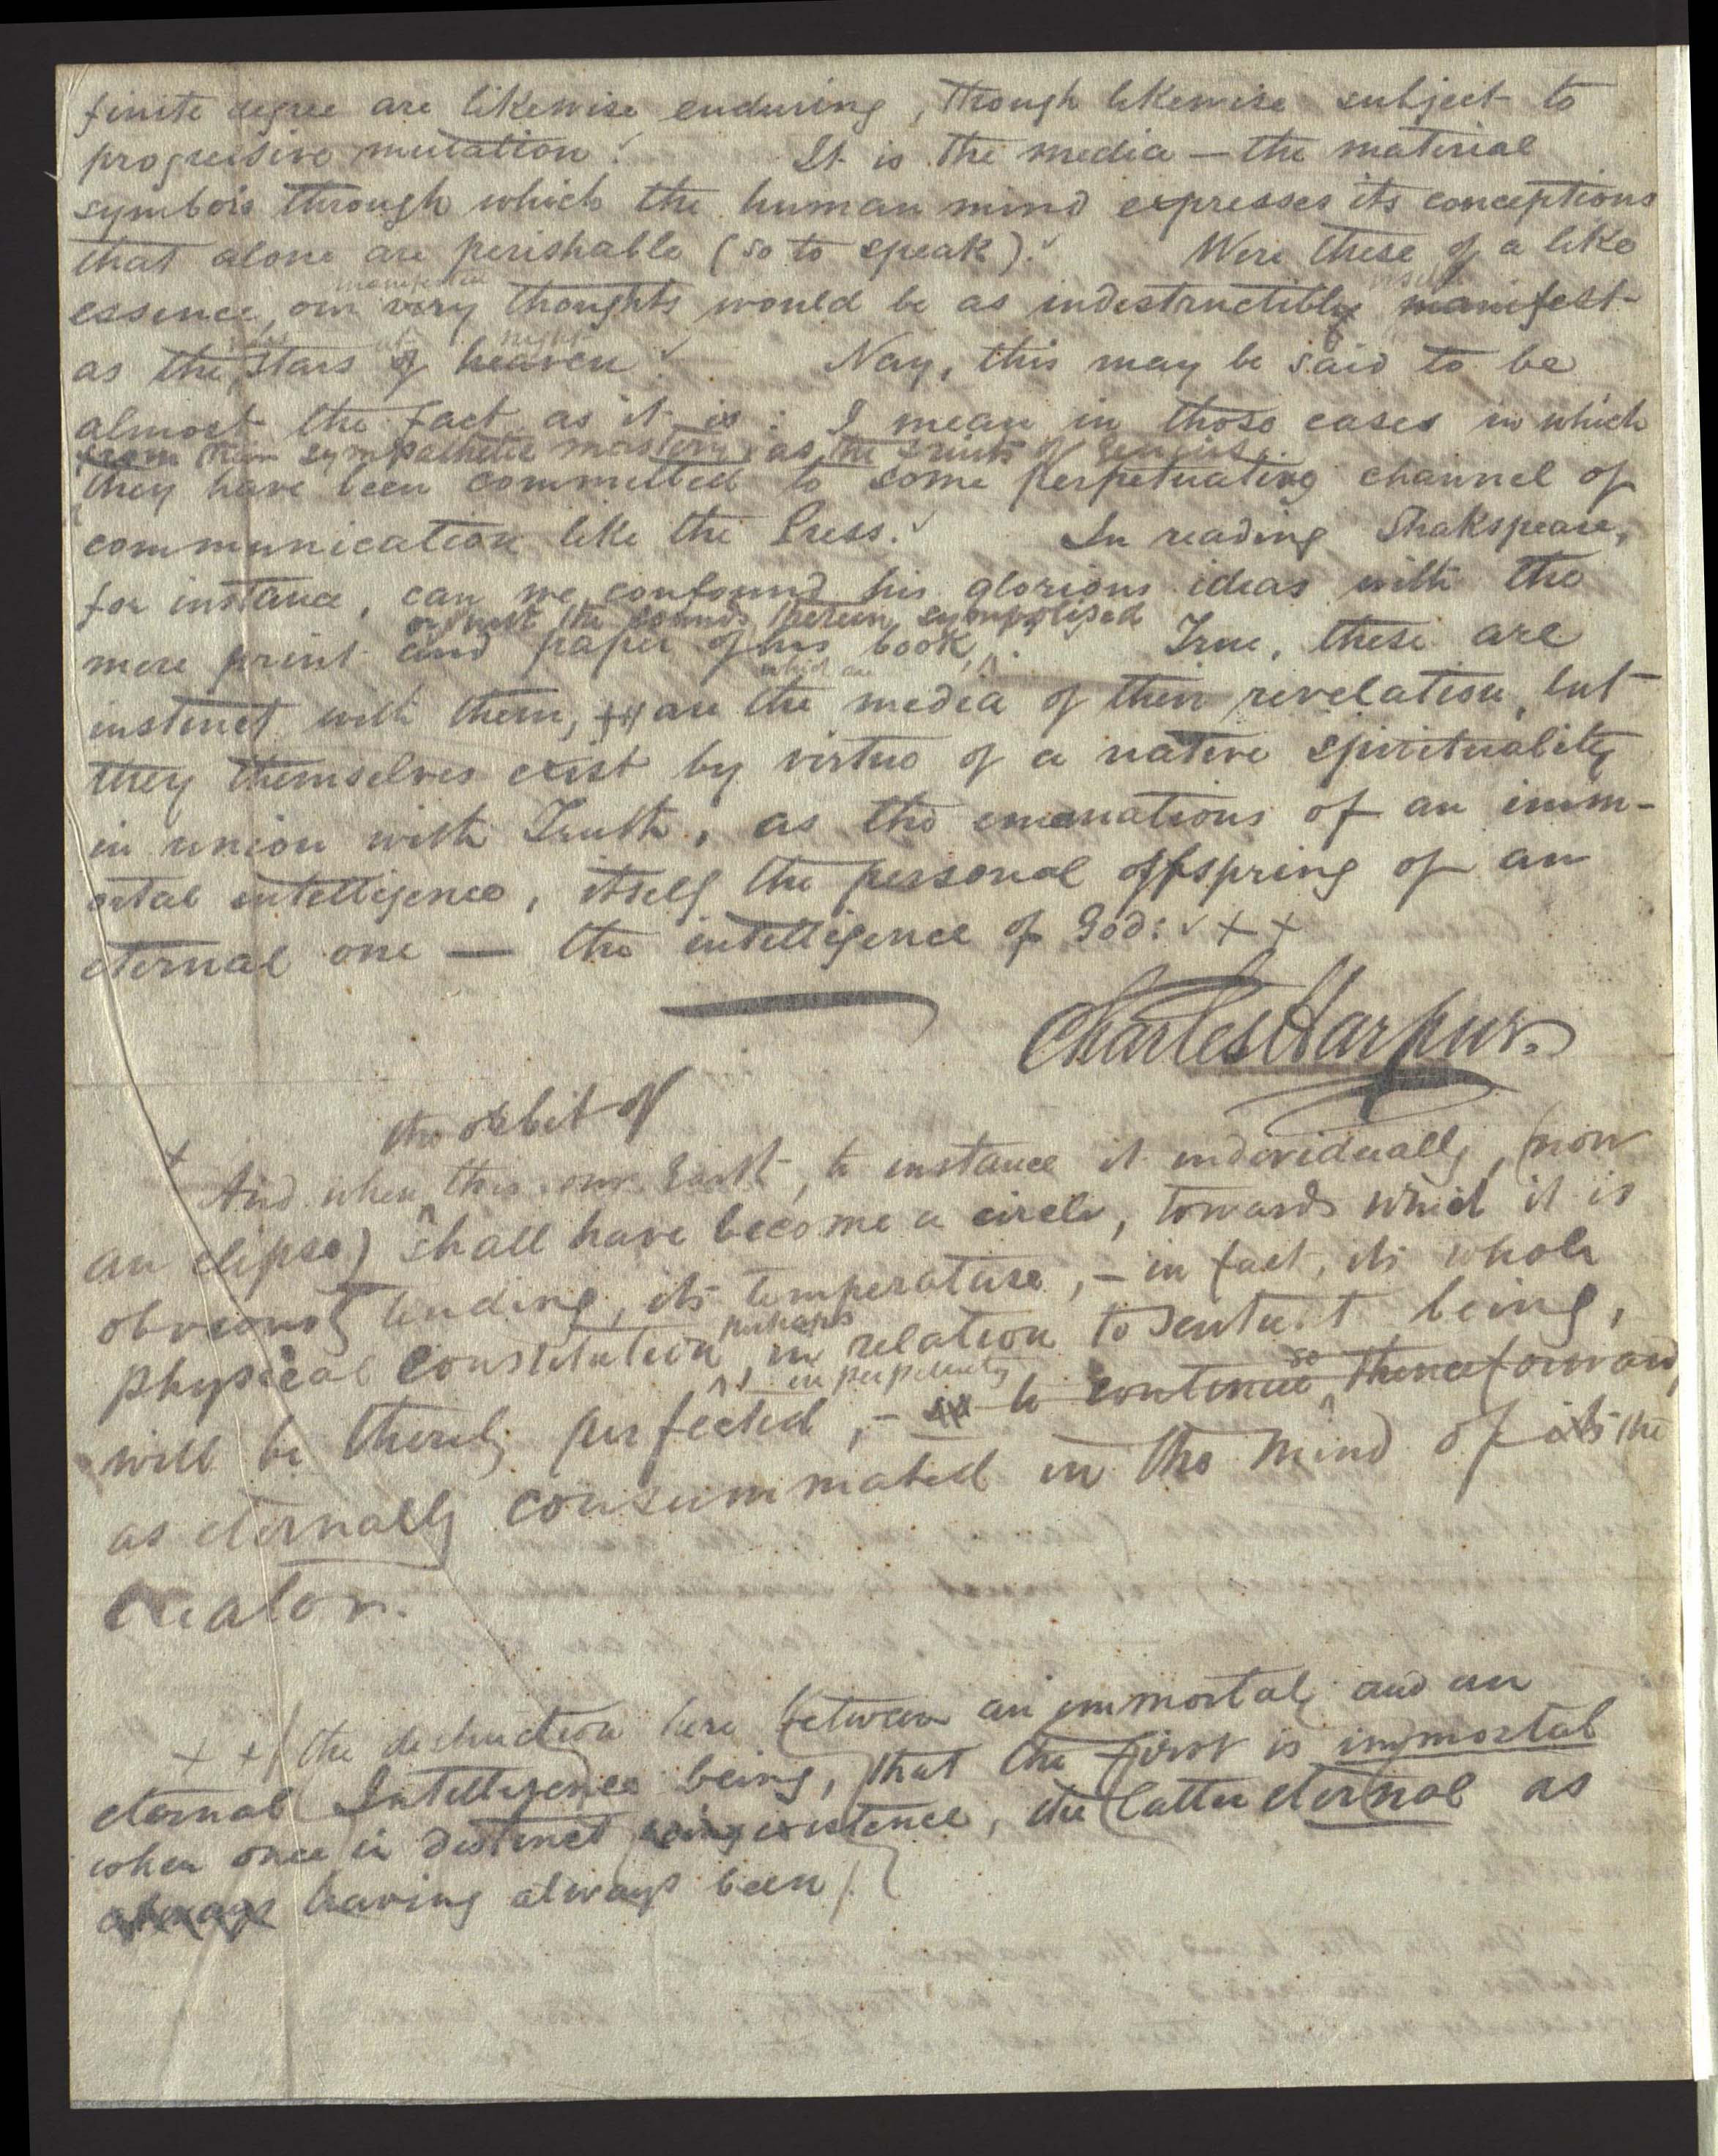 finite degree are likewise enduring, though likewise subject to
progressive mutation.
It is the media — the material
symbols through which the human mind expresses its conceptions
that alone are perishable (so to speak).
Were these of a like
essence, our very thoughts would be as indestructibly manifest
as the stars of heaven.
night
Nay, this may be said to be
almost the fact as it is: I mean in those cases in which
from their sympathetic mastery, as the fruits of Genius,
they have been committed to some perpetuating channel of
communication like the Press.
In reading Shakspeare,
for instance, can we confound his glorious ideas with the
or with the sounds therein symbolised
mere print and paper of his book.
True, these are
which are
instinct with them, are the media of their revelation, but
they themselves exist by virtue of a native spirituality
in union with Truth, as the emanations of an imm-
ortal intelligence, itself the personal offspring of an
eternal one — the intelligence of God: ++
Charles Harpur.
the orbit of
+ And when this our Earth, to instance it individually, (now
an elipse) shall have become a circle, towards which it is
obviously tending, its temperature, – in fact, its whole
perhaps
physical constitution, in relation to sentient being,
in perpetuity
so
will be thereby perfected, – to continue thenceforward,
as eternally consummated in the Mind of its the
Creator.
++ (the distinction here between an immortal and an
eternal Intelligence being, that the first is immortal
when once in distinct being existence, the latter eternal as
always having always been).